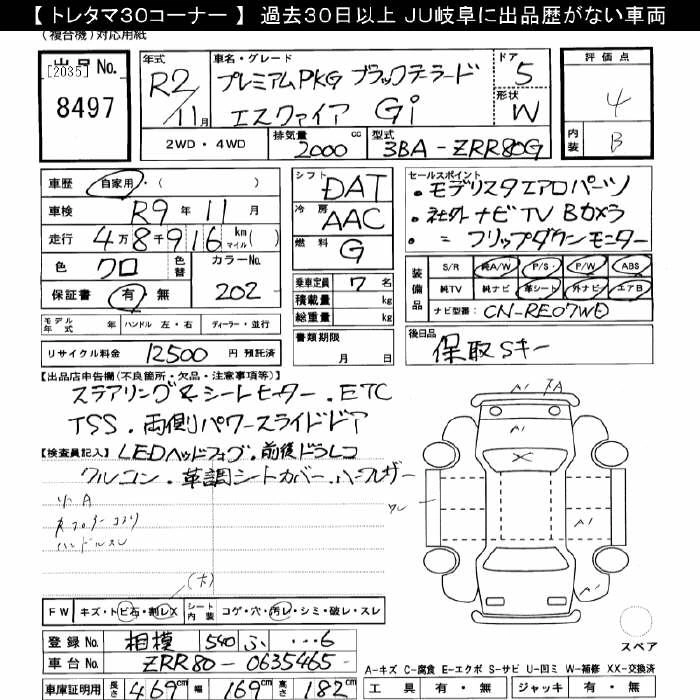 【 トレタマ30コーナー 】 過去30日以上 JU岐阜に出品歴がない車両
(複合機)対応用紙
出品No.
[2035]
8497
年式
R2/11月
車名・グレード
プレミアムPKG ブラックテーラード
エスクァイア Gi
ドア
5
形状
W
評価点
4
内装
B
2WD・4WD
排気量 2000 cc
型式 3BA-ZRR80G
車歴 自家用・( )
車検 R9年11月
走行 4万8千916 km マイル( )
色 クロ 色替 カラーNo. 202
保証書 有・無
モデル年式 年 ハンドル 左・右 ディーラー・並行
リサイクル料金 12500 円 預託済
シフト DAT
冷房 AAC
燃料 G
乗車定員 7 名
積載量 kg
総重量 kg
書類期限
月 日
セールスポイント
・モデリスタエアロパーツ
・社外ナビTV Bカメラ
・〃 フリップダウンモニター
装備品
S/R 純A/W P/S P/W ABS
純TV 純ナビ 革シート 外ナビ エアB
ナビ型番: CN-RE07WD
後日品
保取Sキー
【出品店申告欄(不良箇所・欠品・注意事項等)】
ステアリング&シートヒーター.ETC
TSS.両側パワースライドドア
【検査員記入】 LEDヘッドフォグ・前後ドラレコ
クルコン・革調シートカバー.ハーフレザー
小A
ハンドルスレ
(大)
FW キズ・トビ石・割レX
シート内装 コゲ・穴・汚レ・シミ・破レ・スレ
登録No. 相模 540 ふ ・・・6
車台No. ZRR80-0635465
車庫証明用 長さ 469cm 幅 169cm 高さ 182cm
スペア
A-キズ C-腐食 E-エクボ S-サビ U-凹ミ W-補修 XX-交換済
工具 有・無 ジャッキ 有・無